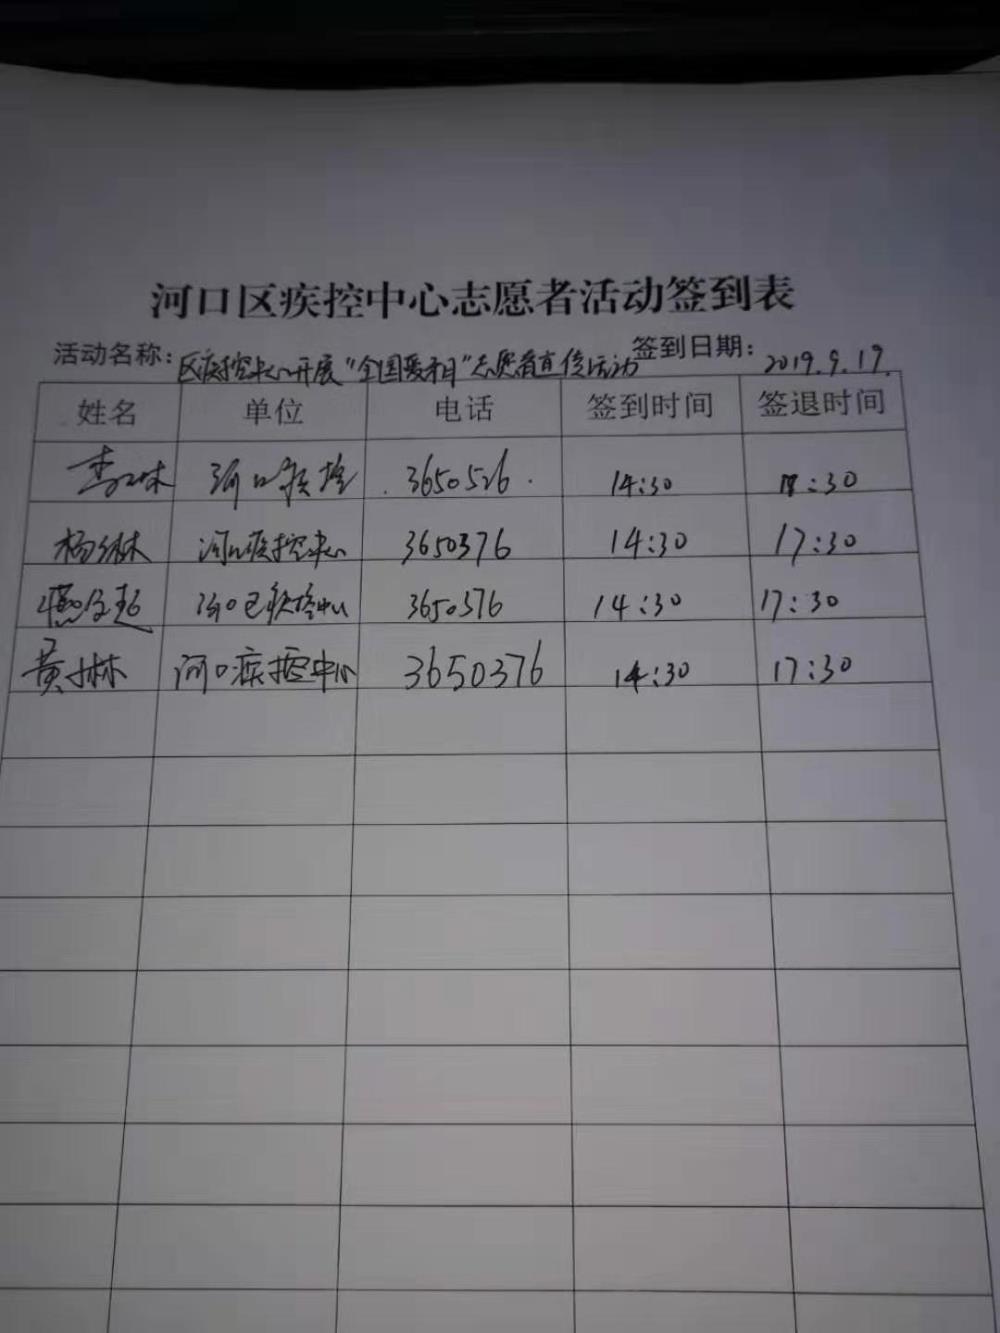 河口区疾控中心志愿者活动签到表
活动名称：区疾控中心开展“全国爱牙日”志愿者宣传活动 签到日期：2019.9.17
姓名 单位 电话 签到时间 签退时间
李 河口疾控 3650526 14:30 :30
杨琳 河口疾控中心 3650376 14:30 17:30
河口区疾控中心 3650376 14:30 17:30
黄琳 河口疾控中心 3650376 14:30 17:30